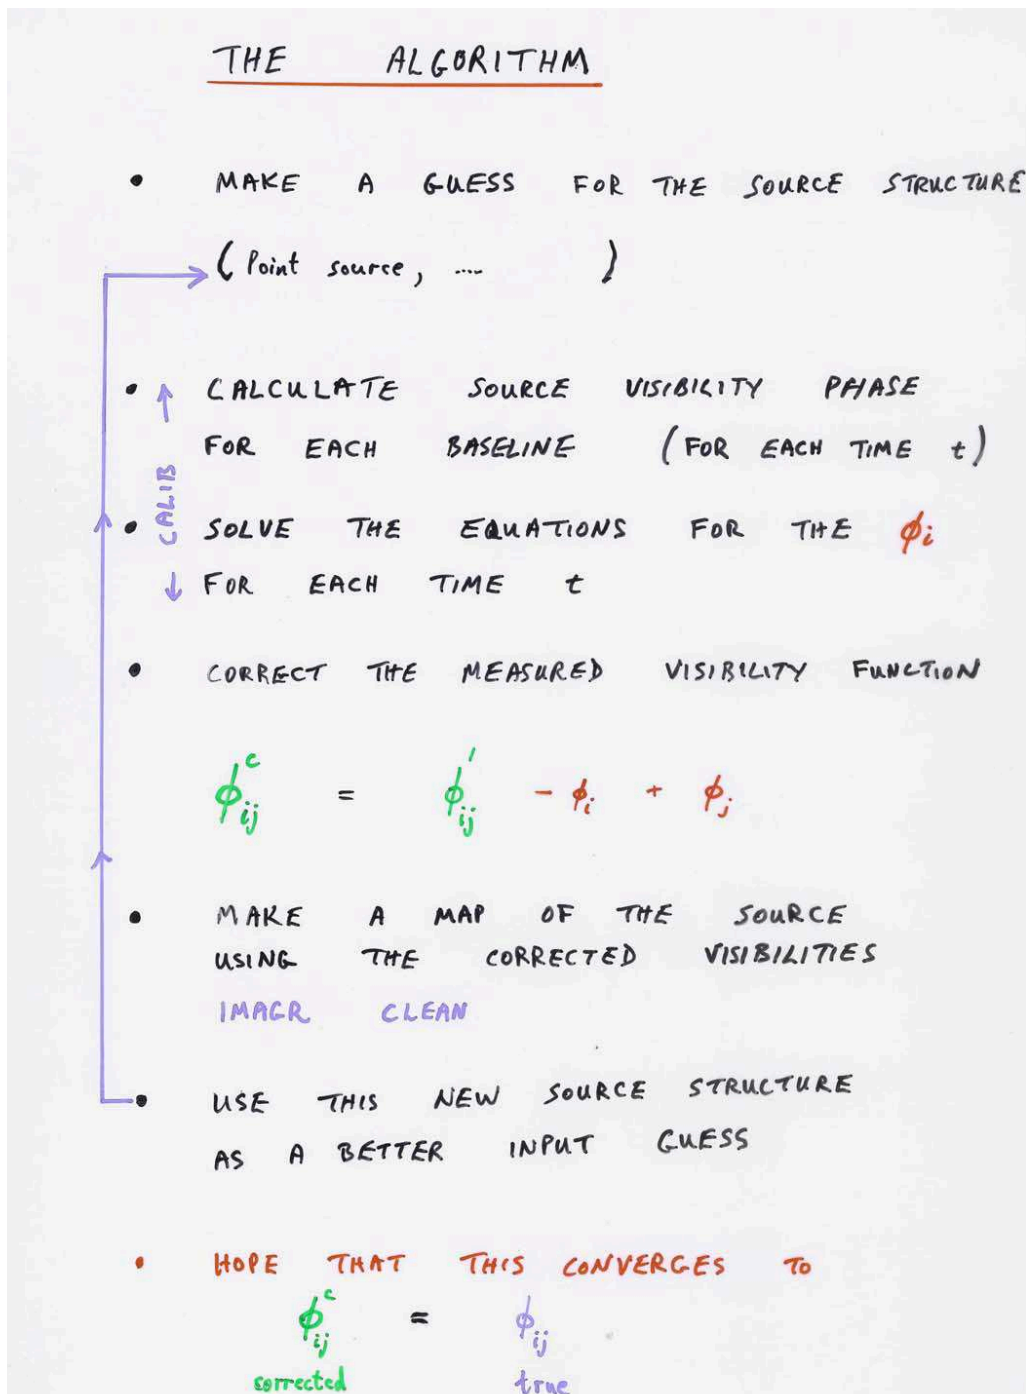 THE ALGORITHM
• MAKE A GUESS FOR THE SOURCE STRUCTURE
(Point source, .... )
• CALCULATE SOURCE VISIBILITY PHASE
FOR EACH BASELINE (FOR EACH TIME t)
CALIB
• SOLVE THE EQUATIONS FOR THE ϕi
FOR EACH TIME t
• CORRECT THE MEASURED VISIBILITY FUNCTION
ϕ^c_ij = ϕ'_ij - ϕi + ϕj
• MAKE A MAP OF THE SOURCE
USING THE CORRECTED VISIBILITIES
IMAGR CLEAN
• USE THIS NEW SOURCE STRUCTURE
AS A BETTER INPUT GUESS
• HOPE THAT THIS CONVERGES TO
ϕ^c_ij = ϕ_ij
corrected true